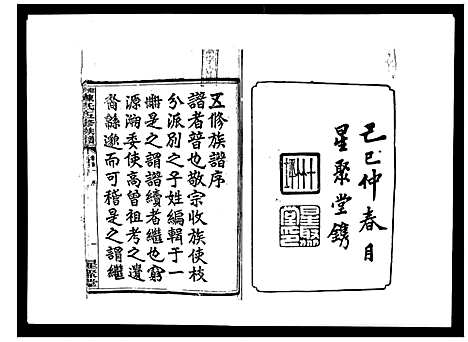 己巳仲春月
星聚堂鐫
五修族譜序
譜者普也敬宗收族使枝
分派別之子姓編輯于一
冊是之謂譜續者繼也窮
源溯委使高曾祖考之遺
裔緜邈而可稽是之謂繼
陳氏五修族譜
星聚堂